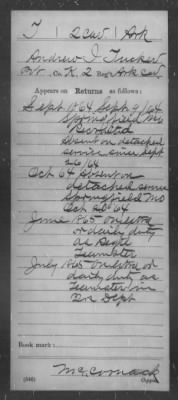 T | 2 Cav | Ark
Andrew J Tucker
Pvt, Co. K, 2 Reg't Ark Cav,
Appears on Returns as follows:
Sept 1864 Sept 9/64
Springfield Mo
absent on detached
service since Sept
26/64
Oct 64 absent on
detached since
Springfield Mo
June 1865 on extra
or daily duty
as Regtl
Teamster
July 1865 on extra or
daily duty as
Teamster in
Dept
Book mark:
McCormack
(546)
Copyist.